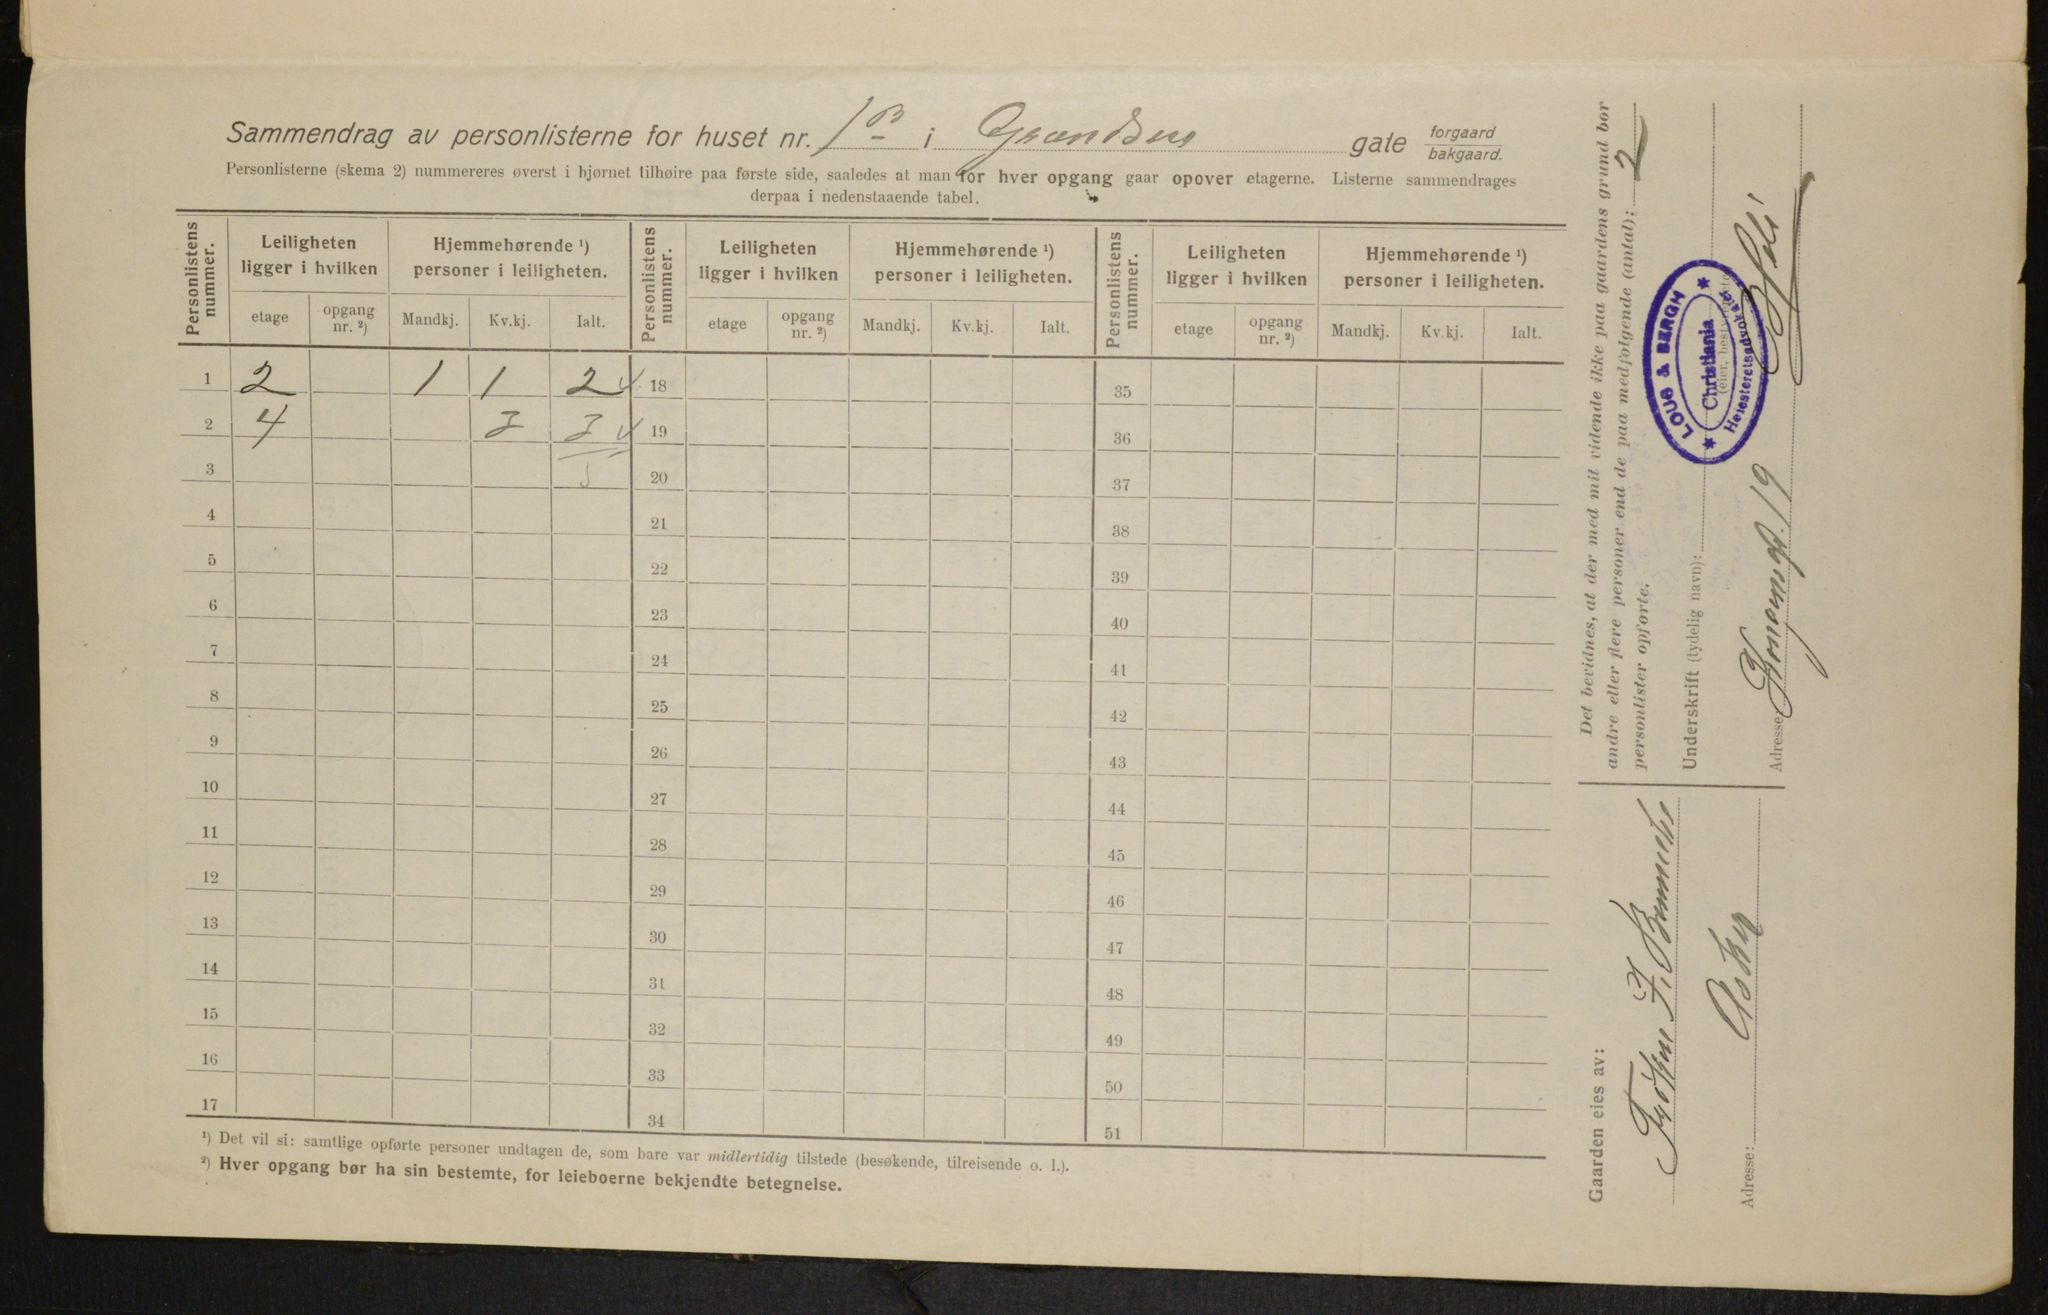 Sammendrag av personlisterne for huset nr. 1B i Grændsen gate forgaard bakgaard.
Personlisterne (skema 2) nummereres øverst i hjørnet tilhøire paa første side, saaledes at man for hver opgang gaar opover etagerne. Listerne sammendrages
derpaa i nedenstaaende tabel.
Personlistens nummer. Leiligheten ligger i hvilken Hjemmehørende ¹) personer i leiligheten. Personlistens nummer. Leiligheten ligger i hvilken Hjemmehørende ¹) personer i leiligheten. Personlistens nummer. Leiligheten ligger i hvilken Hjemmehørende ¹) personer i leiligheten.
etage opgang nr. ²) Mandkj. Kv.kj. Ialt. etage opgang nr. ²) Mandkj. Kv.kj. Ialt. etage opgang nr. ²) Mandkj. Kv.kj. Ialt.
1 2 1 1 2 18 35
2 4 3 3 19 36
3 5 20 37
4 21 38
5 22 39
6 23 40
7 24 41
8 25 42
9 26 43
10 27 44
11 28 45
12 29 46
13 30 47
14 31 48
15 32 49
16 33 50
17 34 51
¹) Det vil si: samtlige opførte personer undtagen de, som bare var midlertidig tilstede (besøkende, tilreisende o. l.).
²) Hver opgang bør ha sin bestemte, for leieboerne bekjendte betegnelse.
Det bevidnes, at der med mit vidende ikke paa gaardens grund bor
andre eller flere personer end de paa medfølgende (antal): 2
personlister opførte.
Underskrift (tydelig navn):
(eier, bestyrer
LOUS & BERGH
Christiania
Høiesteretsadvokater
Adresse: Kongensgt. 19
Gaarden eies av:
Frøken F.
Adresse: Asker